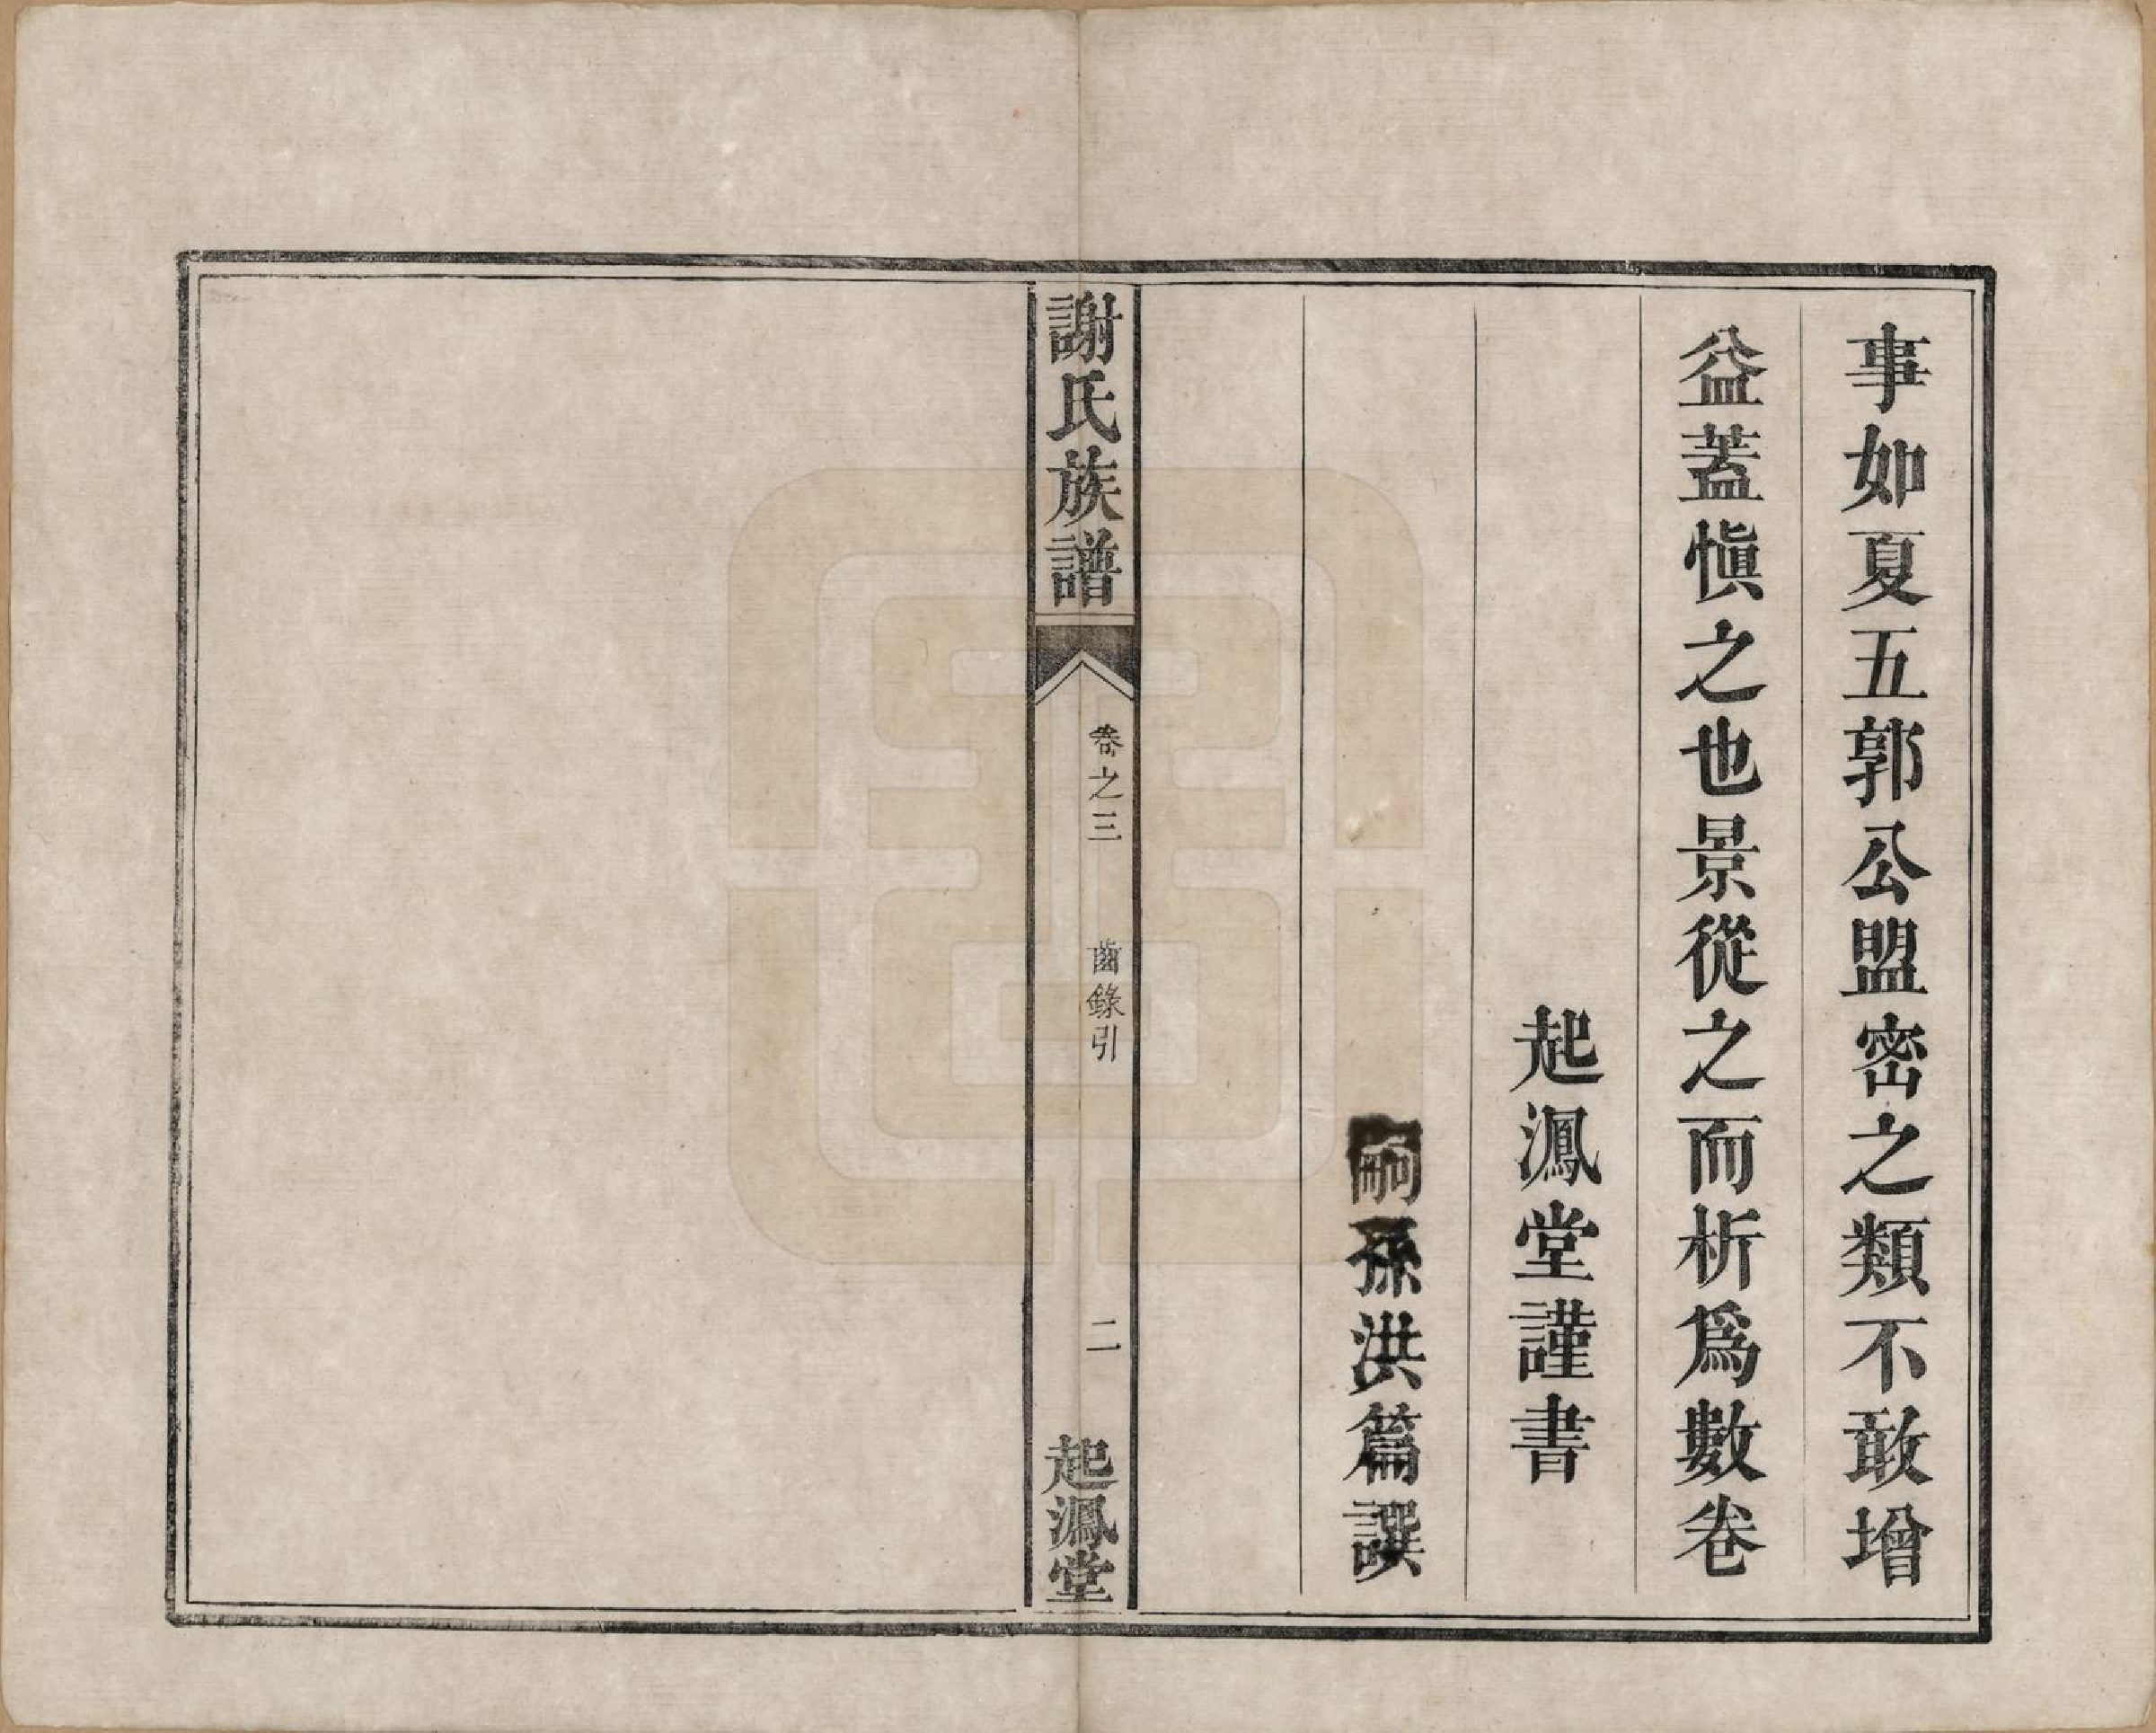 事如夏五郭公盟密之類不敢增
益蓋愼之也景從之而析爲數卷
起鳳堂謹書
嗣孫洪篇譔
謝氏族譜
卷之三
齒錄引
二
起鳳堂